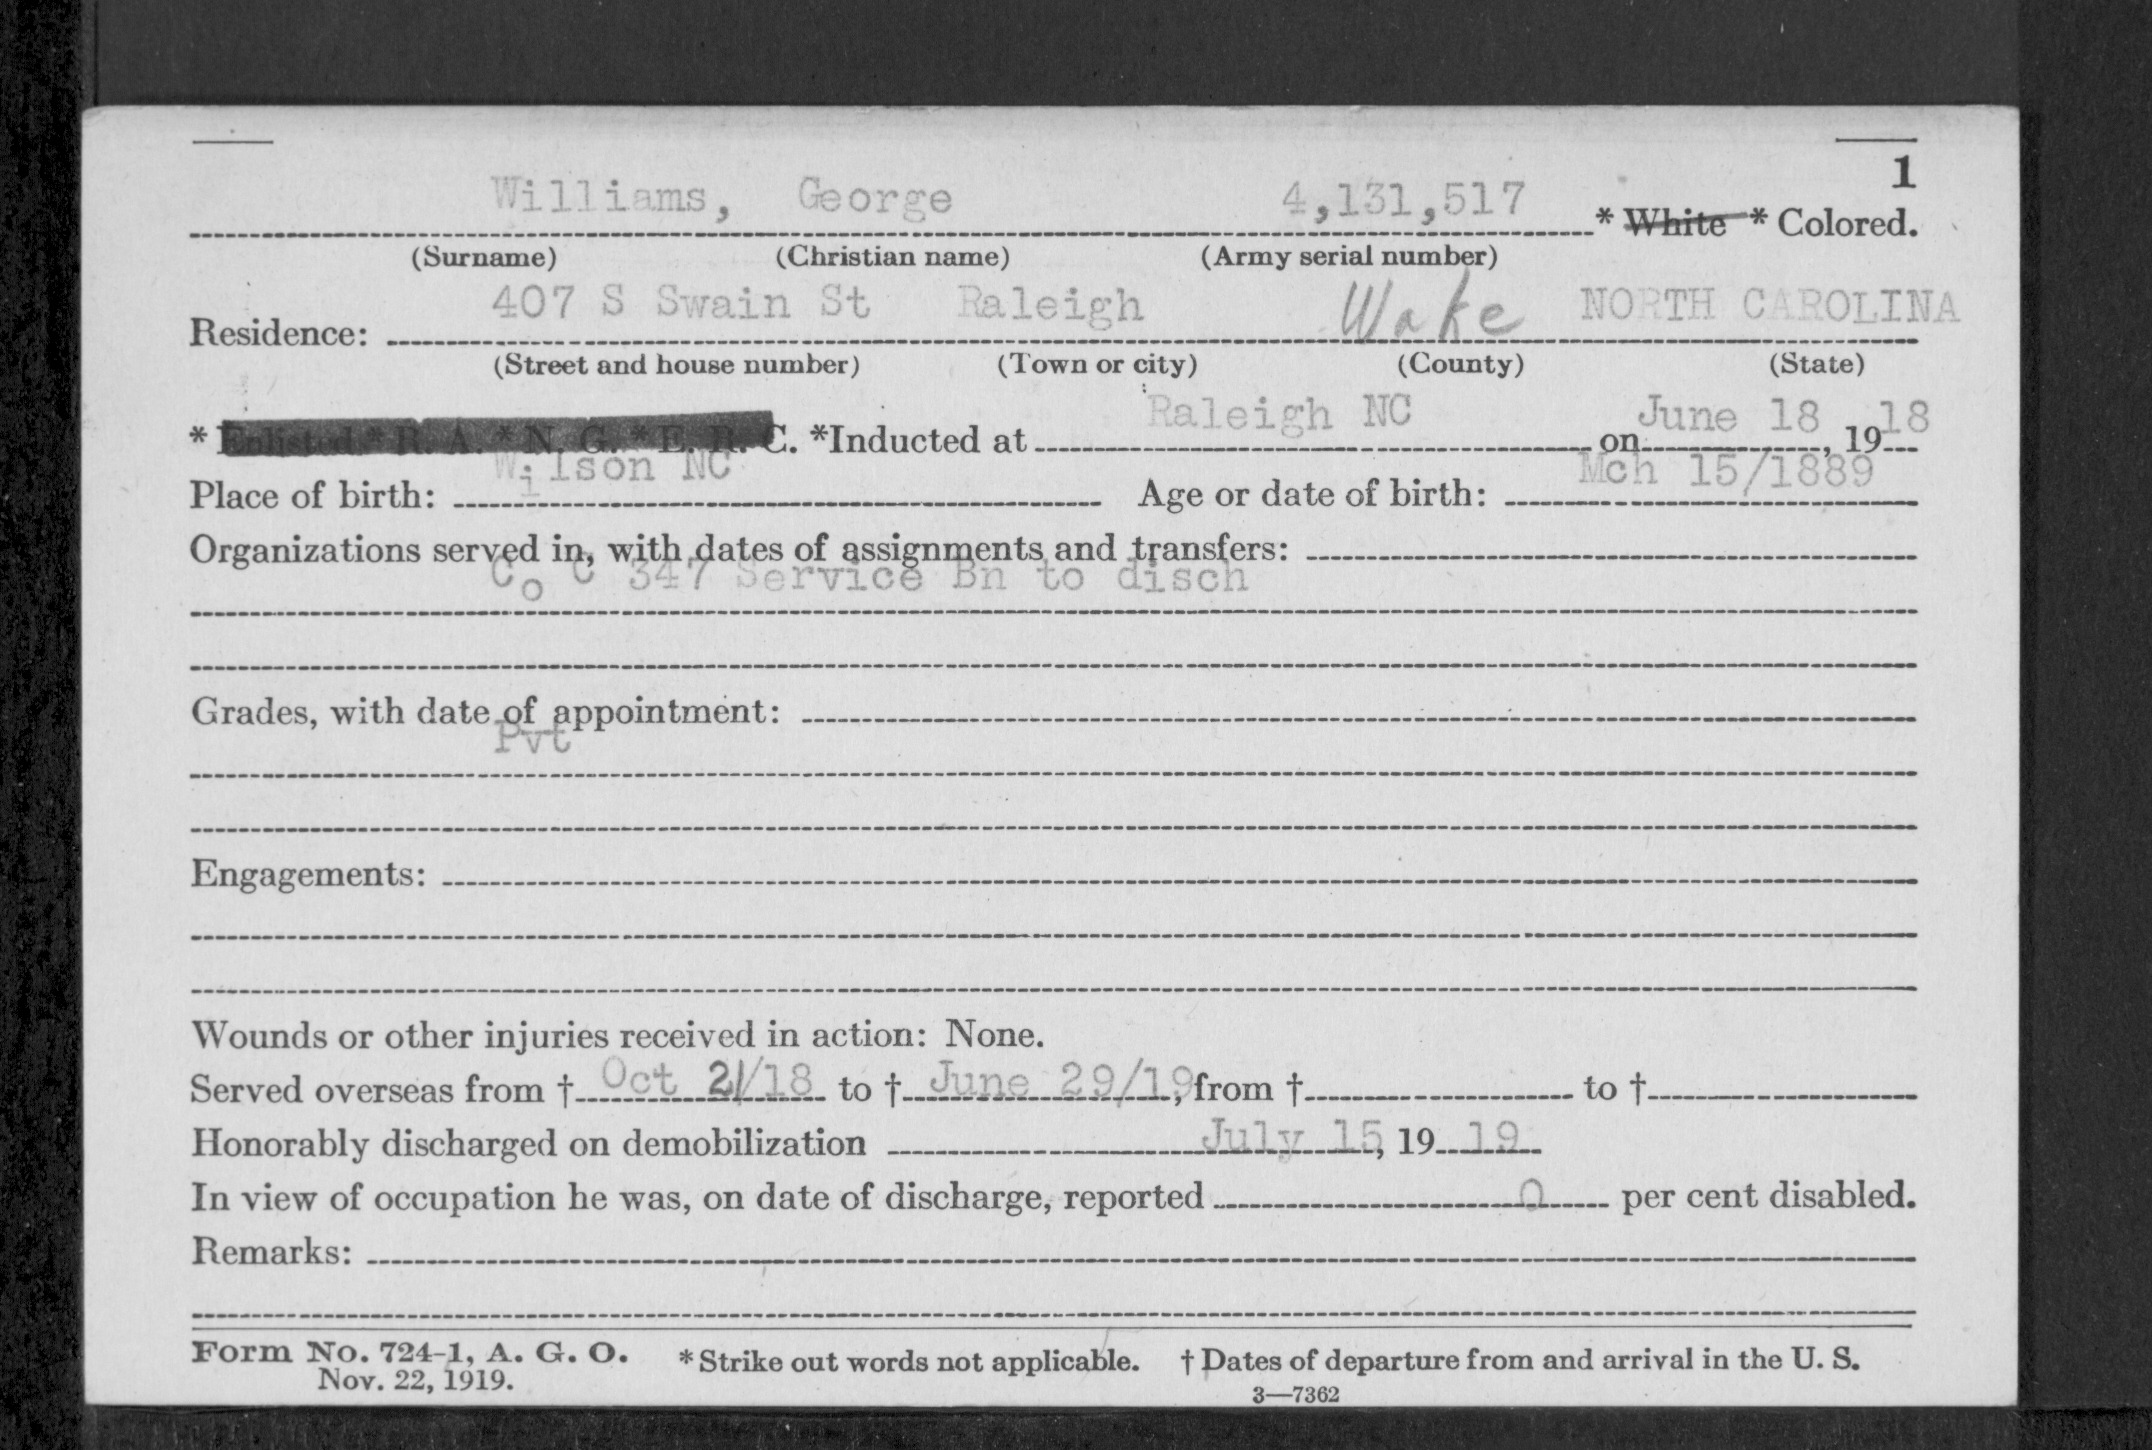 1
Williams, George 4,131,517 * White * Colored.
(Surname) (Christian name) (Army serial number)
407 S Swain St Raleigh Wake NORTH CAROLINA
Residence:
(Street and house number) (Town or city) (County) (State)
Raleigh NC June 18 18
* Enlisted * R. A. * N. G. * E. R. C. *Inducted at on , 19
Wilson NC Mch 15/1889
Place of birth: Age or date of birth:
Organizations served in, with dates of assignments and transfers:
Co C 347 Service Bn to disch
Grades, with date of appointment:
Pvt
Engagements:
Wounds or other injuries received in action: None.
Served overseas from † Oct 21/18 to † June 29/19, from † to †
Honorably discharged on demobilization July 15, 19 19
In view of occupation he was, on date of discharge, reported 0 per cent disabled.
Remarks:
Form No. 724-1, A. G. O. * Strike out words not applicable. † Dates of departure from and arrival in the U. S.
Nov. 22, 1919.
3—7362